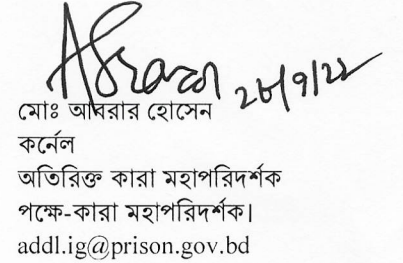 ২৮/৯/২২
মোঃ আবরার হোসেন
কর্নেল
অতিরিক্ত কারা মহাপরিদর্শক
পক্ষে-কারা মহাপরিদর্শক।
addl.ig@prison.gov.bd